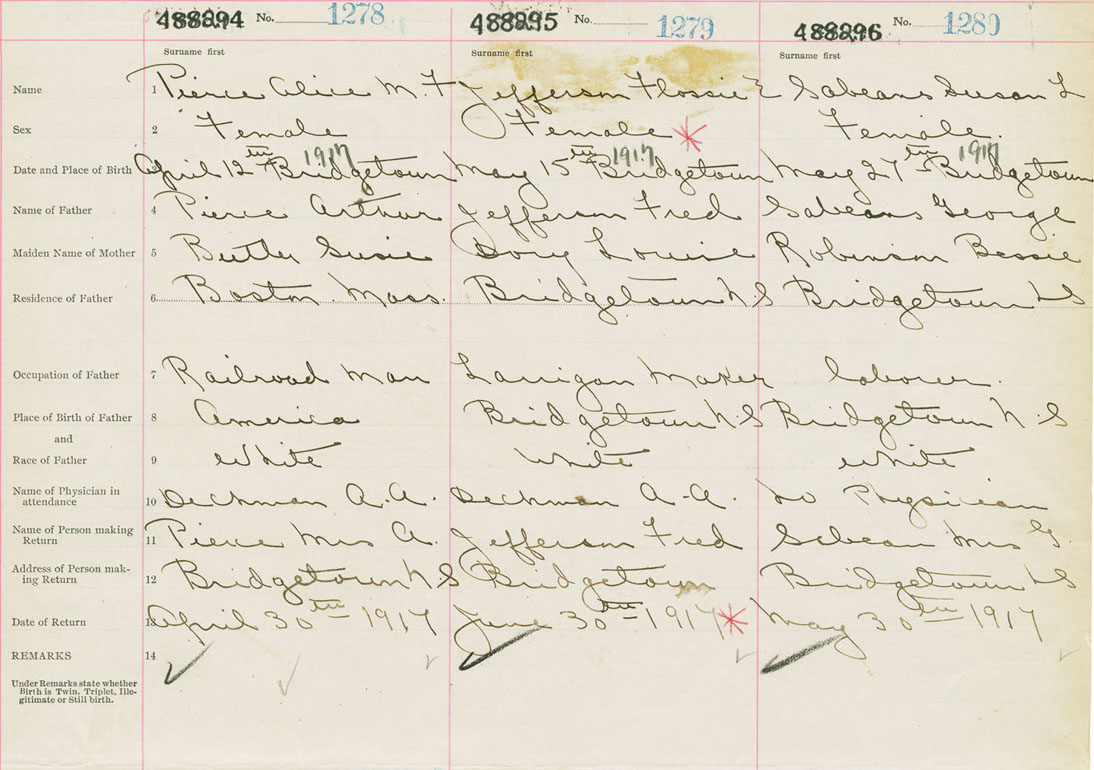 488294 No. 1278 488295 No. 1279 488296 No. 1280
Surname first Surname first Surname first
Name 1 Pierce Alice M. F Jefferson Flossie E Sabeans Susan L
Sex 2 Female Female * Female.
Date and Place of Birth April 12th 1917 Bridgetown May 15th 1917 Bridgetown May 27th 1917 Bridgetown
Name of Father 4 Pierce Arthur Jefferson Fred Sabeans George
Maiden Name of Mother 5 Butler Susie Dory Louise Robinson Bessie
Residence of Father 6 Boston Mass. Bridgetown N.S Bridgetown N S
Occupation of Father 7 Railroad Man Larrigan Maker laborer.
Place of Birth of Father 8 America Bridgetown N.S Bridgetown N.S
and
Race of Father 9 White White White
Name of Physician in
attendance 10 Deckman A.A. Deckman A.A. No Physician
Name of Person making
Return 11 Pierce Mrs A. Jefferson Fred Sebean Mrs G.
Address of Person mak-
ing Return 12 Bridgetown N.S Bridgetown Bridgetown N S
Date of Return 13 April 30th 1917 June 30th 1917 * May 30th 1917
REMARKS 14
Under Remarks state whether
Birth is Twin, Triplet, Ille-
gitimate or Still birth.